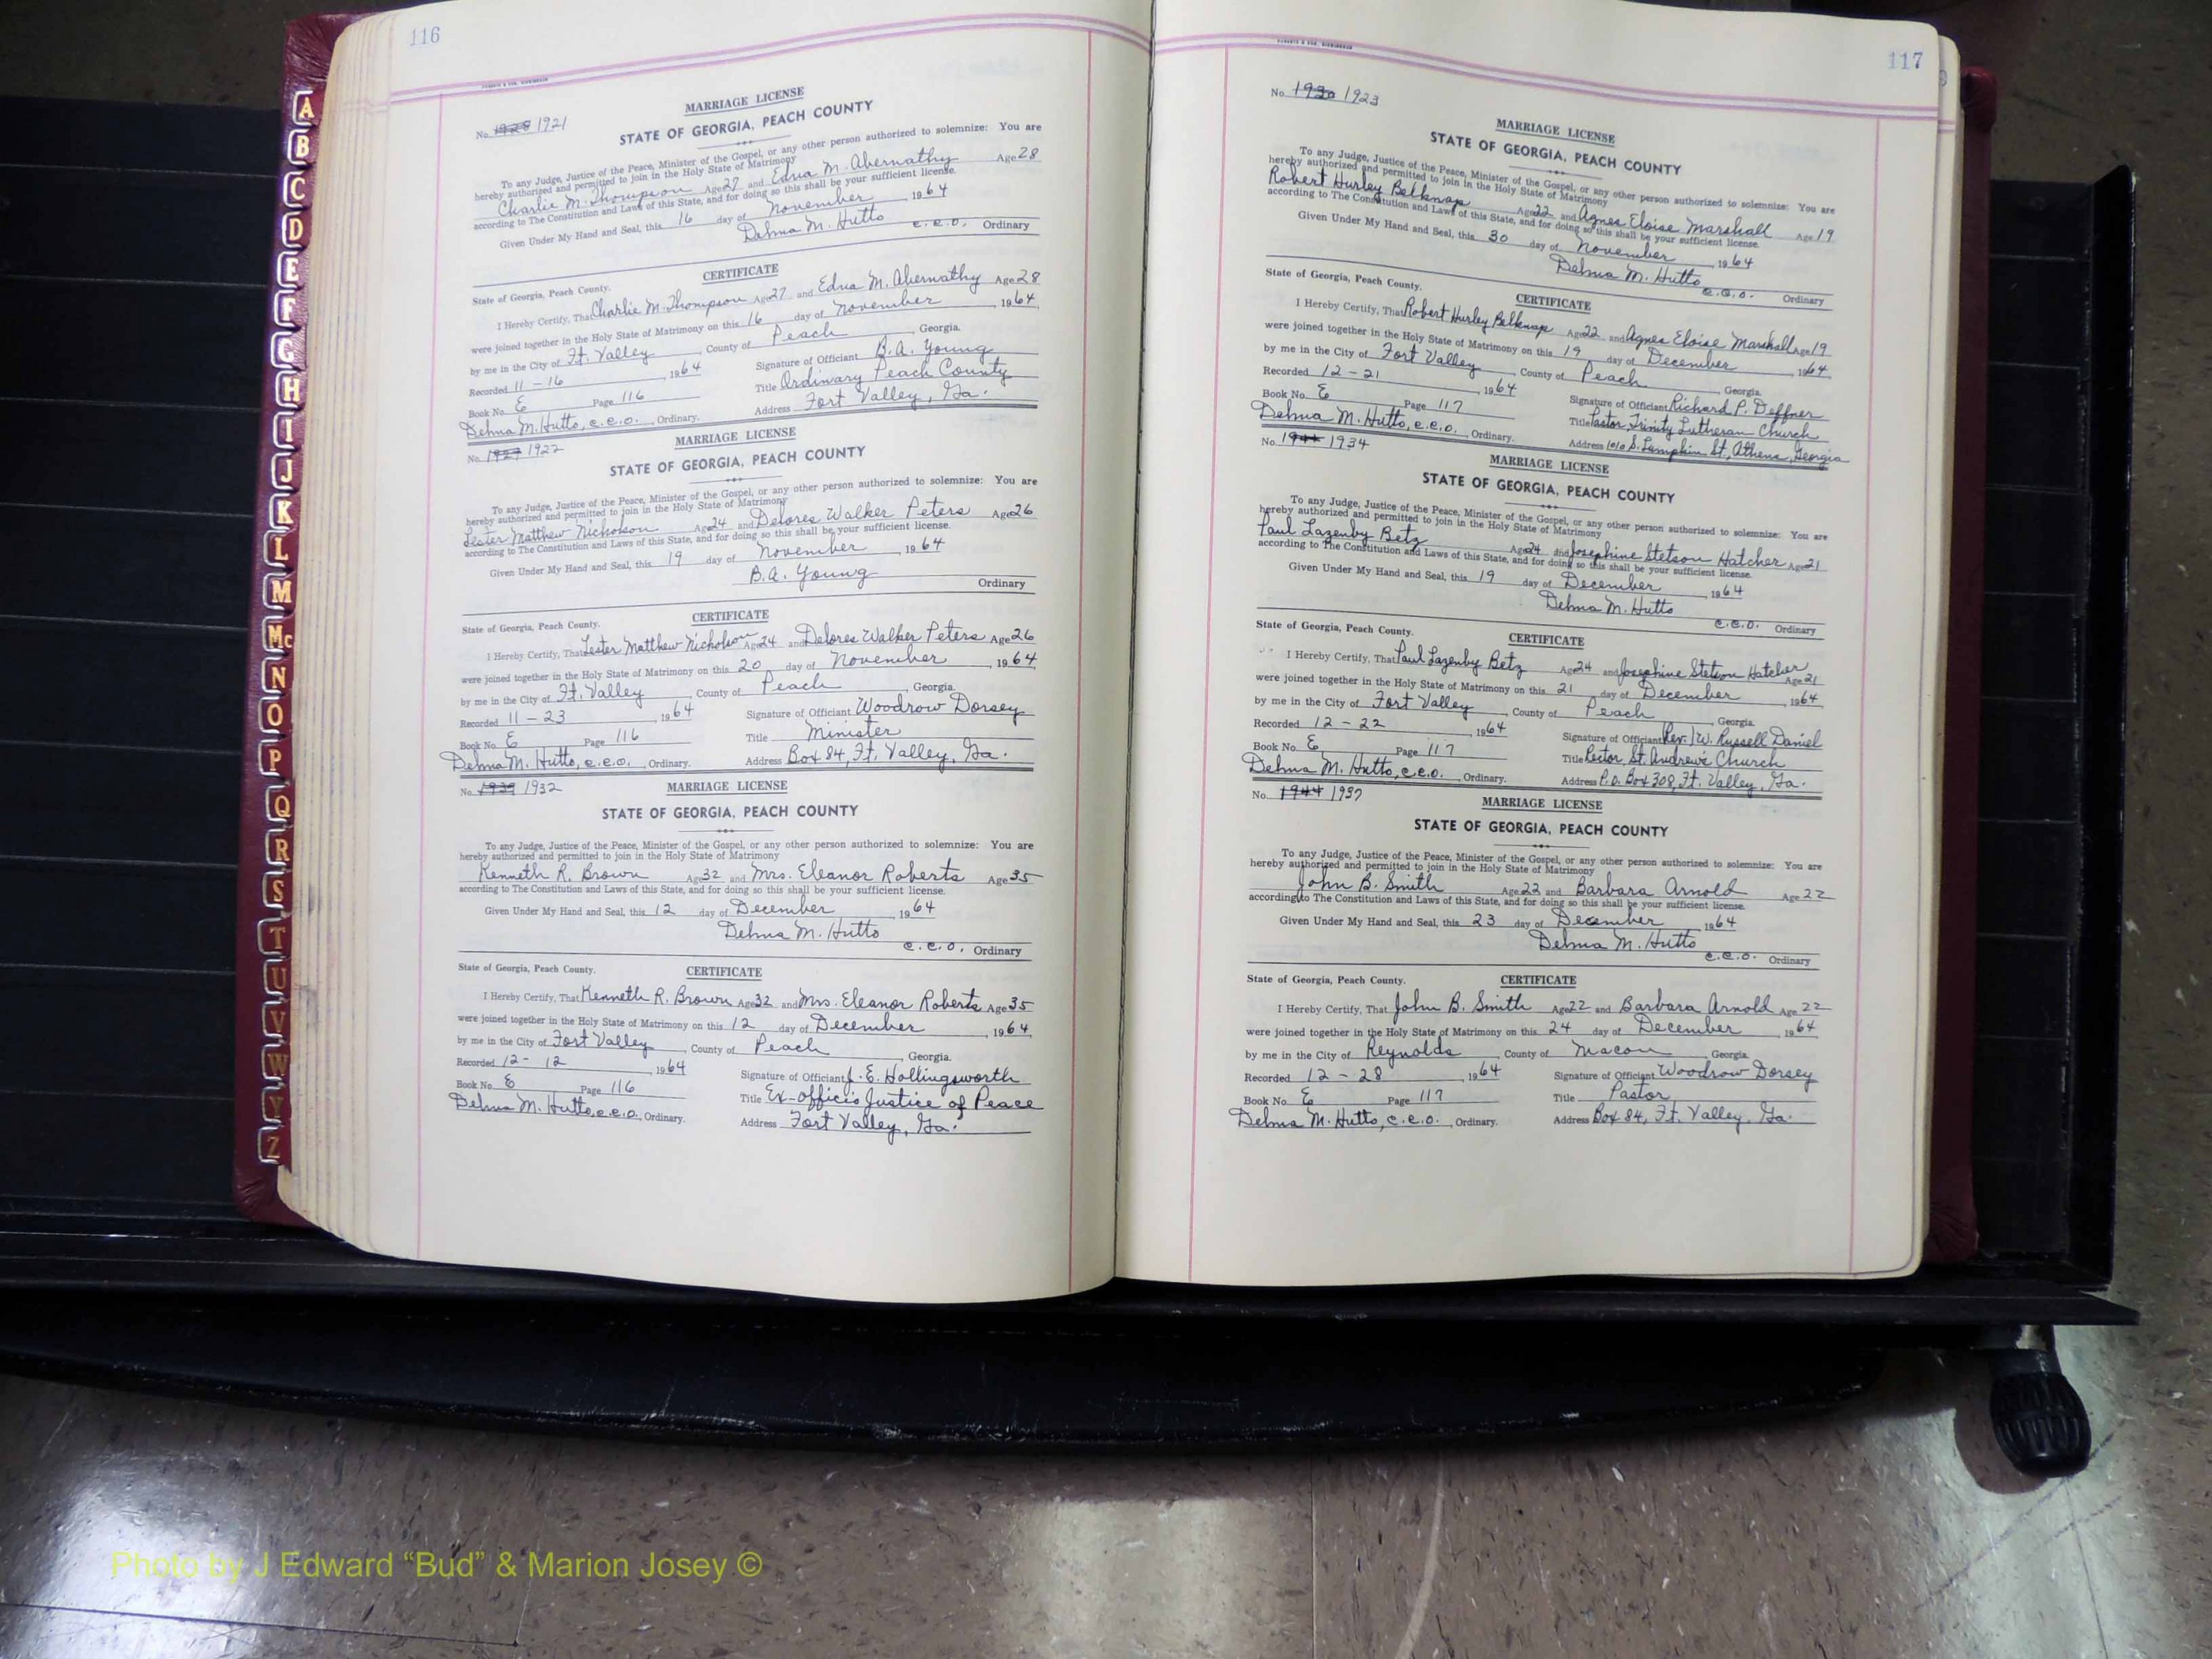 116
MARRIAGE LICENSE
No. 1928 1921
STATE OF GEORGIA, PEACH COUNTY
To any Judge, Justice of the Peace, Minister of the Gospel, or any other person authorized to solemnize: You are
hereby authorized and permitted to join in the Holy State of Matrimony
Charlie M. Thompson Age 27 and Edna M. Abernathy Age 28
according to The Constitution and Laws of this State, and for doing so this shall be your sufficient license.
Given Under My Hand and Seal, this 16 day of November, 1964
Delma M. Hutto
c.c.o. Ordinary
CERTIFICATE
State of Georgia, Peach County.
I Hereby Certify, That Charlie M. Thompson Age 27 and Edna M. Abernathy Age 28
were joined together in the Holy State of Matrimony on this 16 day of November, 1964,
by me in the City of Ft. Valley, County of Peach, Georgia.
Recorded 11-16, 1964 Signature of Officiant B.A. Young
Book No. E Page 116 Title Ordinary Peach County
Delma M. Hutto, c.c.o., Ordinary. Address Fort Valley, Ga.
MARRIAGE LICENSE
No. 1929 1922
STATE OF GEORGIA, PEACH COUNTY
To any Judge, Justice of the Peace, Minister of the Gospel, or any other person authorized to solemnize: You are
hereby authorized and permitted to join in the Holy State of Matrimony
Lester Matthew Nicholson Age 24 and Delores Walker Peters Age 26
according to The Constitution and Laws of this State, and for doing so this shall be your sufficient license.
Given Under My Hand and Seal, this 19 day of November, 1964
B.A. Young
Ordinary
CERTIFICATE
State of Georgia, Peach County.
I Hereby Certify, That Lester Matthew Nicholson Age 24 and Delores Walker Peters Age 26
were joined together in the Holy State of Matrimony on this 20 day of November, 1964,
by me in the City of Ft. Valley, County of Peach, Georgia.
Recorded 11-23, 1964 Signature of Officiant Woodrow Dorsey
Book No. E Page 116 Title Minister
Delma M. Hutto, c.c.o., Ordinary. Address Box 84, Ft. Valley, Ga.
No. 1939 1932
MARRIAGE LICENSE
STATE OF GEORGIA, PEACH COUNTY
To any Judge, Justice of the Peace, Minister of the Gospel, or any other person authorized to solemnize: You are
hereby authorized and permitted to join in the Holy State of Matrimony
Kenneth R. Brown Age 32 and Mrs. Eleanor Roberts Age 35
according to The Constitution and Laws of this State, and for doing so this shall be your sufficient license.
Given Under My Hand and Seal, this 12 day of December, 1964
Delma M. Hutto
c.c.o. Ordinary
State of Georgia, Peach County.
CERTIFICATE
I Hereby Certify, That Kenneth R. Brown Age 32 and Mrs. Eleanor Roberts Age 35
were joined together in the Holy State of Matrimony on this 12 day of December, 1964,
by me in the City of Fort Valley, County of Peach, Georgia.
Recorded 12-12, 1964 Signature of Officiant J. E. Hollingsworth
Book No. E Page 116 Title Ex-officio Justice of Peace
Delma M. Hutto, c.c.o., Ordinary. Address Fort Valley, Ga.
117
No. 1930 1923
MARRIAGE LICENSE
STATE OF GEORGIA, PEACH COUNTY
To any Judge, Justice of the Peace, Minister of the Gospel, or any other person authorized to solemnize: You are
hereby authorized and permitted to join in the Holy State of Matrimony
Robert Hurley Belknap Age 22 and Agnes Eloise Marshall Age 19
according to The Constitution and Laws of this State, and for doing so this shall be your sufficient license.
Given Under My Hand and Seal, this 30 day of November, 1964
Delma M. Hutto
c.c.o. Ordinary
State of Georgia, Peach County.
CERTIFICATE
I Hereby Certify, That Robert Hurley Belknap Age 22 and Agnes Eloise Marshall Age 19
were joined together in the Holy State of Matrimony on this 19 day of December, 1964,
by me in the City of Fort Valley, County of Peach, Georgia.
Recorded 12-21, 1964 Signature of Officiant Richard P. Deffner
Book No. E Page 117 Title Pastor, Trinity Lutheran Church
Delma M. Hutto, c.c.o., Ordinary. Address 1010 S. Lumpkin St, Athens, Georgia
No. 1944 1934
MARRIAGE LICENSE
STATE OF GEORGIA, PEACH COUNTY
To any Judge, Justice of the Peace, Minister of the Gospel, or any other person authorized to solemnize: You are
hereby authorized and permitted to join in the Holy State of Matrimony
Paul Lazenby Betz Age 24 and Josephine Stetson Hatcher Age 21
according to The Constitution and Laws of this State, and for doing so this shall be your sufficient license.
Given Under My Hand and Seal, this 19 day of December, 1964
Delma M. Hutto
c.c.o. Ordinary
State of Georgia, Peach County.
CERTIFICATE
I Hereby Certify, That Paul Lazenby Betz Age 24 and Josephine Stetson Hatcher Age 21
were joined together in the Holy State of Matrimony on this 21 day of December, 1964
by me in the City of Fort Valley, County of Peach, Georgia.
Recorded 12-22, 1964 Signature of Officiant Rev. J.W. Russell Daniel
Book No. E Page 117 Title Rector St. Andrews Church
Delma M. Hutto, c.c.o., Ordinary. Address P.O. Box 308, Ft. Valley, Ga.
No. 1944 1937
MARRIAGE LICENSE
STATE OF GEORGIA, PEACH COUNTY
To any Judge, Justice of the Peace, Minister of the Gospel, or any other person authorized to solemnize: You are
hereby authorized and permitted to join in the Holy State of Matrimony
John B. Smith Age 22 and Barbara Arnold Age 22
according to The Constitution and Laws of this State, and for doing so this shall be your sufficient license.
Given Under My Hand and Seal, this 23 day of December, 1964
Delma M. Hutto
c.c.o. Ordinary
State of Georgia, Peach County.
CERTIFICATE
I Hereby Certify, That John B. Smith Age 22 and Barbara Arnold Age 22
were joined together in the Holy State of Matrimony on this 24 day of December, 1964
by me in the City of Reynolds, County of Macon, Georgia.
Recorded 12-28, 1964 Signature of Officiant Woodrow Dorsey
Book No. E Page 117 Title Pastor
Delma M. Hutto, c.c.o., Ordinary. Address Box 84, Ft. Valley, Ga.
A
B
C
D
E
F
G
H
I
J
K
L
M
Mc
N
O
P
Q
R
S
T
U
V
W
Y
Z
Photo by J Edward “Bud” & Marion Josey ©